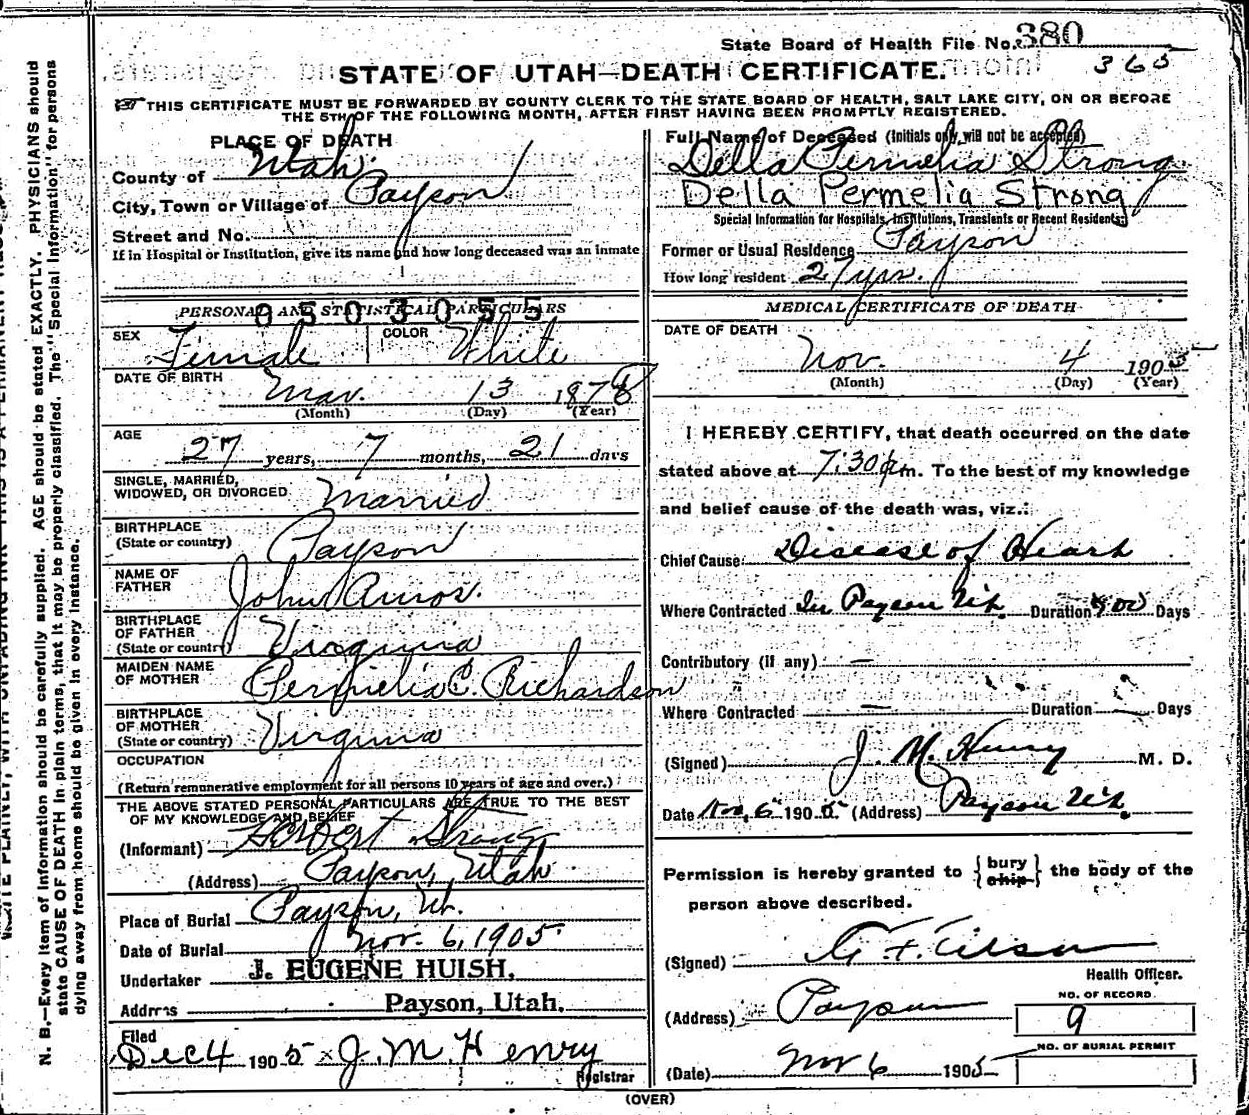 State Board of Health File No. 380
365
STATE OF UTAH—DEATH CERTIFICATE.
THIS CERTIFICATE MUST BE FORWARDED BY COUNTY CLERK TO THE STATE BOARD OF HEALTH, SALT LAKE CITY, ON OR BEFORE
THE 5TH OF THE FOLLOWING MONTH, AFTER FIRST HAVING BEEN PROMPTLY REGISTERED.
PLACE OF DEATH
County of Utah
City, Town or Village of Payson
Street and No.
If in Hospital or Institution, give its name and how long deceased was an inmate
Full Name of Deceased (Initials only will not be accepted)
Della Permelia Strong
Della Permelia Strong
Special Information for Hospitals, Institutions, Transients or Recent Residents:
Former or Usual Residence Payson
How long resident 27 yrs.
PERSONAL AND STATISTICAL PARTICULARS
0503055
SEX Female COLOR White
DATE OF BIRTH Mar. 13 1878
(Month) (Day) (Year)
AGE
27 years, 7 months, 21 days
SINGLE, MARRIED,
WIDOWED, OR DIVORCED Married
BIRTHPLACE
(State or country) Payson
NAME OF
FATHER John Amos.
BIRTHPLACE
OF FATHER
(State or country) Virginia
MAIDEN NAME
OF MOTHER Permelia C. Richardson
BIRTHPLACE
OF MOTHER
(State or country) Virginia
OCCUPATION
(Return remunerative employment for all persons 10 years of age and over.)
THE ABOVE STATED PERSONAL PARTICULARS ARE TRUE TO THE BEST
OF MY KNOWLEDGE AND BELIEF
(Informant) Herbert Strong
(Address) Payson, Utah
Place of Burial Payson, Ut.
Date of Burial Nov. 6, 1905
Undertaker J. EUGENE HUISH,
Address Payson, Utah.
Filed
Dec 4 1905 J. M. Henry
Registrar
MEDICAL CERTIFICATE OF DEATH
DATE OF DEATH
Nov. 4 1905
(Month) (Day) (Year)
I HEREBY CERTIFY, that death occurred on the date
stated above at 7:30 p.m. To the best of my knowledge
and belief cause of the death was, viz.:
Chief Cause: Disease of Heart
Where Contracted In Payson Utah Duration 900 Days
Contributory (if any) —
Where Contracted — Duration — Days
(Signed) J. M. Henry M. D.
Date Nov. 6 1905 (Address) Payson Utah.
Permission is hereby granted to { bury ship } the body of the
person above described.
(Signed)
Health Officer.
(Address) Payson
NO. OF RECORD
9
NO. OF BURIAL PERMIT
(Date) Nov 6 1905
(OVER)
N. B.—Every item of information should be carefully supplied. AGE should be stated EXACTLY. PHYSICIANS should
state CAUSE OF DEATH in plain terms, that it may be properly classified. The "Special Information" for persons
dying away from home should be given in every instance.